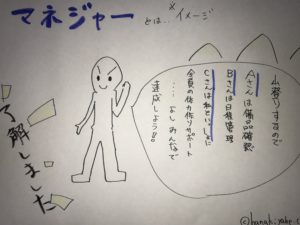 マネジャー とは… ※イメージ
山登りするので
Aさんは備品確認
Bさんは日程管理
Cさんは私といっしょに
全員の体力作りサポート
……よし みんなで
達成しよう!!
了解しました